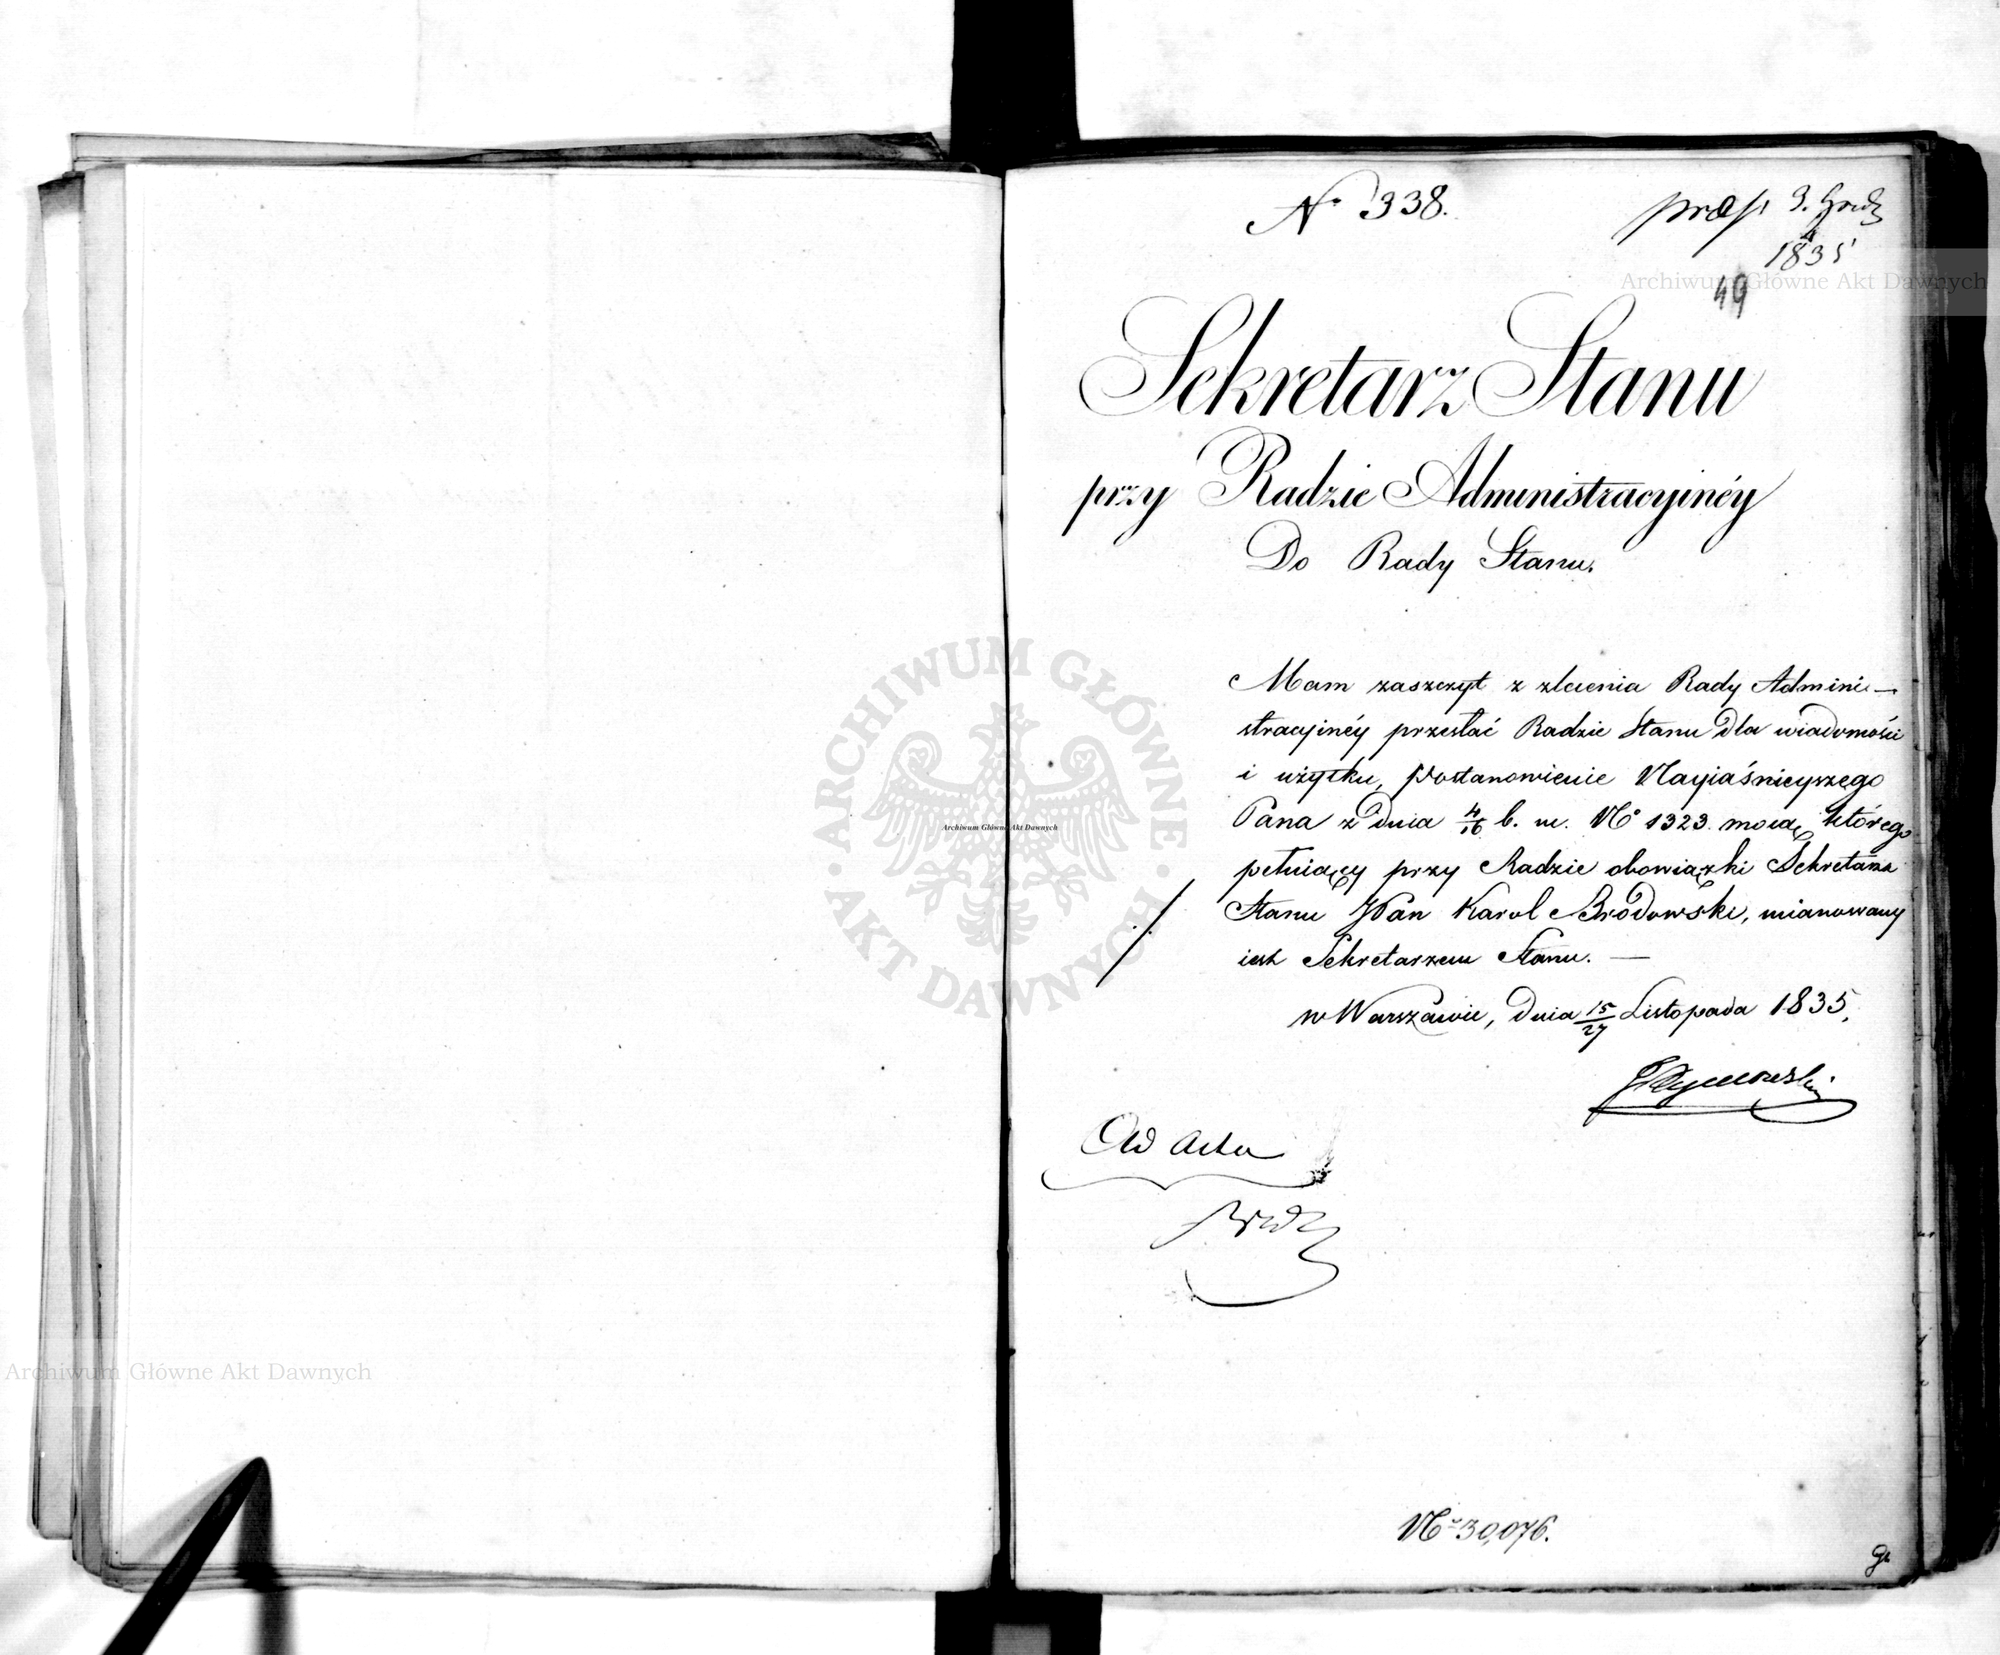 No 338.
præs. 3. Grud.
1835
49
Sekretarz Stanu
przy Radzie Administracyinéy
Do Rady Stanu.
Mam zaszczyt z zlecenia Rady Admini-
stracyinéy przesłać Radzie Stanu dla wiadomości
i użytku, Postanowienie Nayiaśnieyszego
Pana z dnia 4/16 b. m. No 1323 mocą którego
pełniący przy Radzie obowiązki Sekretarza
Stanu JPan Karol Brodowski, mianowany
iest Sekretarzem Stanu. —
w Warszawie, dnia 15/27 Listopada 1835.
Ad acta
No 30,076.
Archiwum Główne Akt Dawnych
ARCHIWUM GŁÓWNE · AKT DAWNYCH ·
Archiwum Główne Akt Dawnych
Archiwum Główne Akt Dawnych